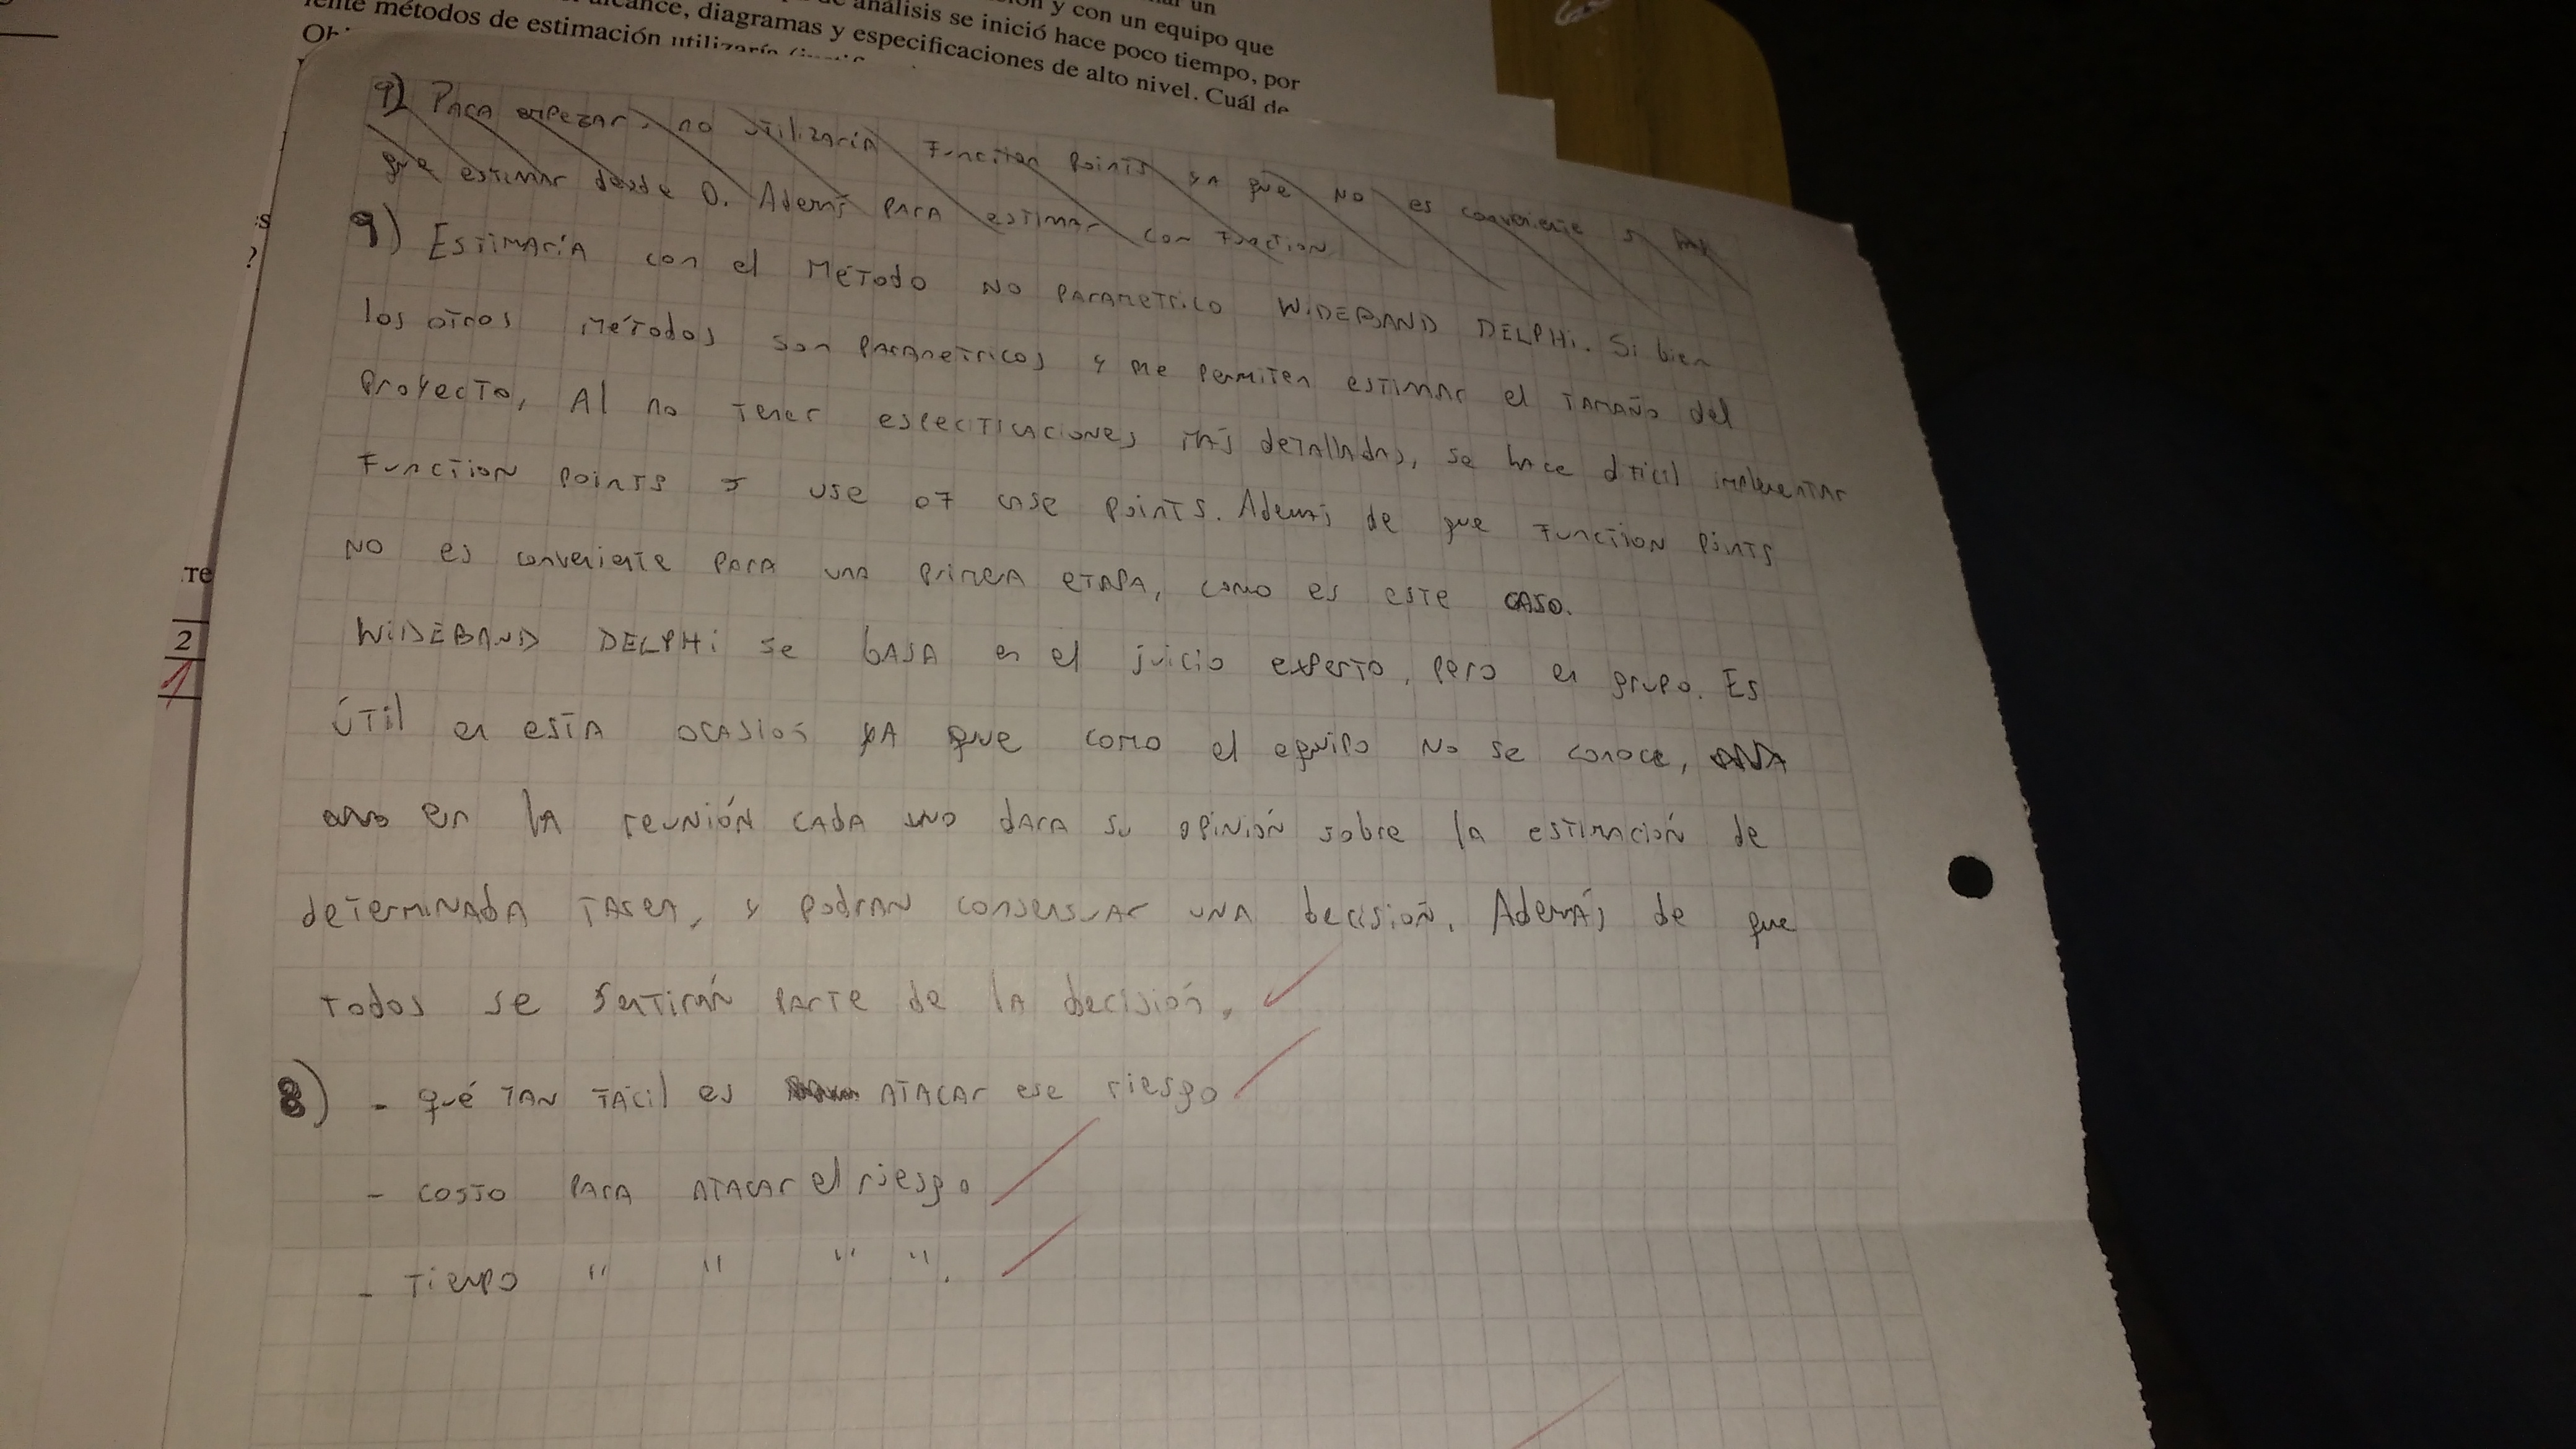 ar un
ón y con un equipo que
de análisis se inició hace poco tiempo, por
alcance, diagramas y especificaciones de alto nivel. Cuál de
métodos de estimación utilizaría
s
?
re
2
1
9) Para empezar, no utilizaría Function Points ya que no es conveniente si hay
que estimar desde 0. Además para estimar con Function
9) Estimaría con el Método no parametrico WIDEBAND DELPHI. Si bien
los otros métodos son parametricos y me permiten estimar el tamaño del
proyecto, Al no tener especificaciones más detalladas, se hace dificil implementar
Function Points o use of case points. Además de que Function Points
no es conveniente para una primera etapa, como es este caso.
WIDEBAND DELPHI se basa en el juicio experto, pero en grupo. Es
útil en esta ocasión ya que como el equipo no se conoce,
en la reunión cada uno dara su opinión sobre la estimación de
determinada tarea, y podran consensuar una decisión. Además de que
todos se sentirán parte de la decisión.
8) - qué tan fácil es atacar ese riesgo
- costo para atacar el riesgo
- tiempo " " " ".